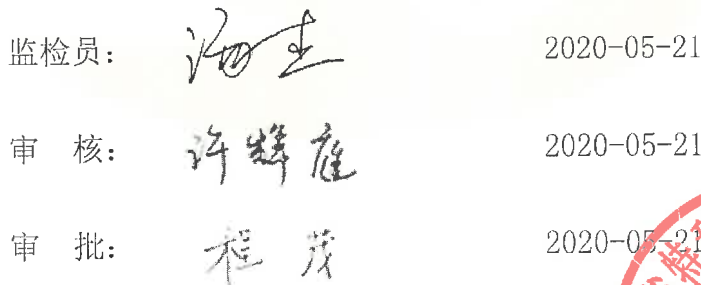 监检员： 2020-05-21
审 核： 许辉庭 2020-05-21
审 批： 程茂 2020-05-21
特